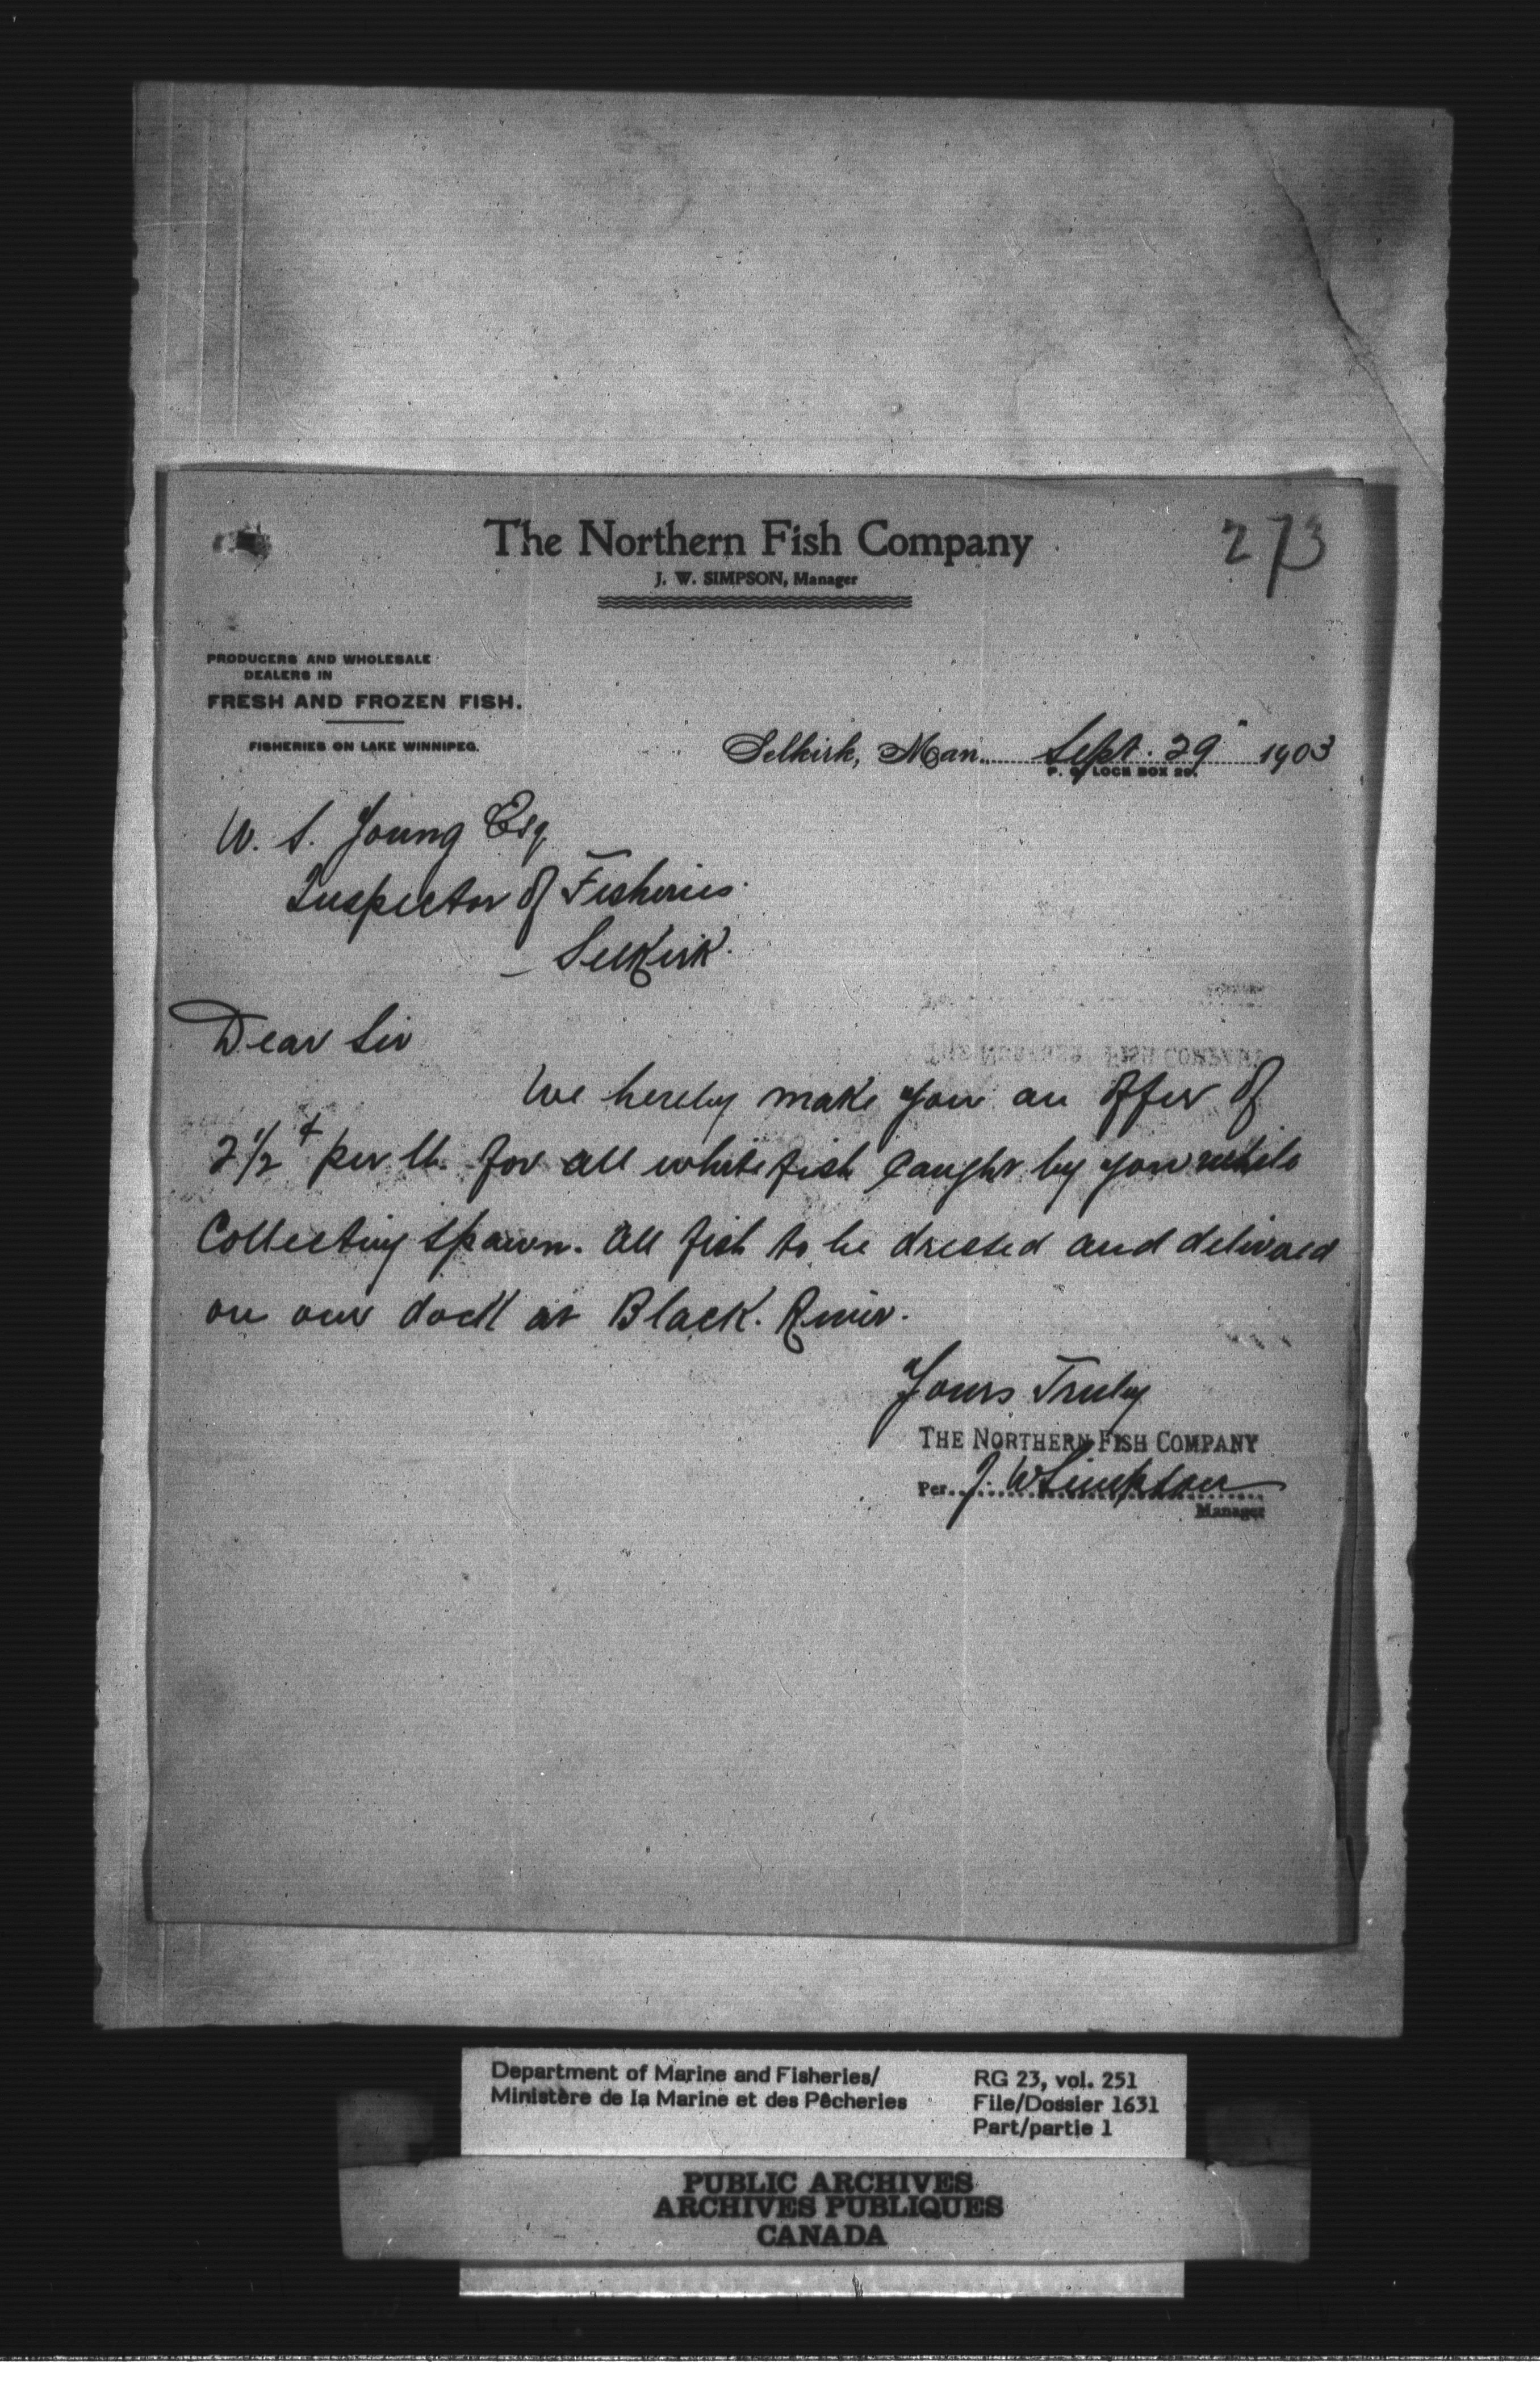 The Northern Fish Company
273
J. W. SIMPSON, Manager
PRODUCERS AND WHOLESALE
DEALERS IN
FRESH AND FROZEN FISH.
FISHERIES ON LAKE WINNIPEG.
Selkirk, Man. Sept. 29" 1903
P. O. LOCK BOX 29.
W. S. Young Esq
Inspector of Fisheries.
Selkirk.
Dear Sir
We hereby make you an offer of
2 1/2 ¢ per lb. for all whitefish caught by you while
Collecting spawn. All fish to be dressed and delivered
on our dock at Black. River.
Yours Truly
THE NORTHERN FISH COMPANY
Per. J. W Simpson
Manager
Department of Marine and Fisheries/
Ministère de la Marine et des Pêcheries
RG 23, vol. 251
File/Dossier 1631
Part/partie 1
PUBLIC ARCHIVES
ARCHIVES PUBLIQUES
CANADA